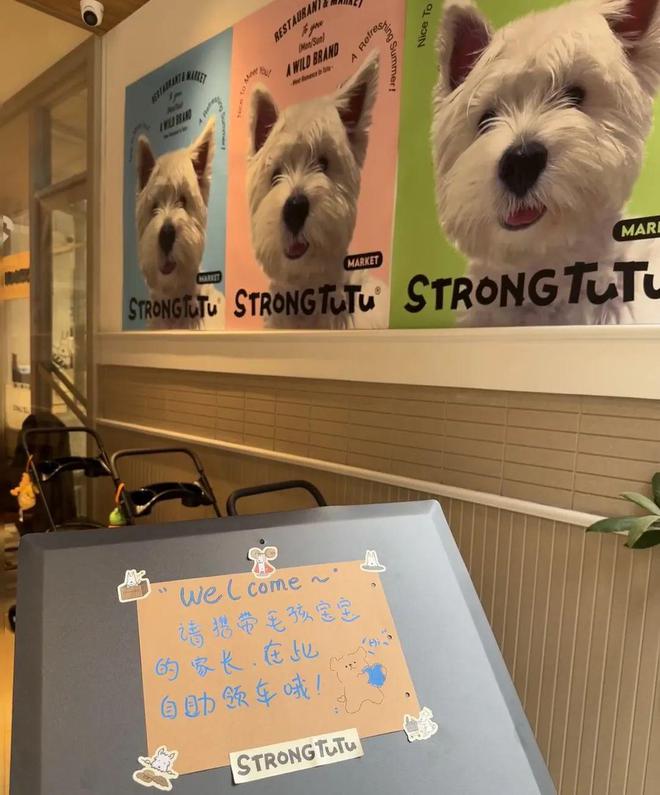 RESTAURANT & MARKET
To you
A WILD BRAND
MARKET
STRONGTuTu
Nice to Meet You!
RESTAURANT & MARKET
To you
(Mon/Sun)
A WILD BRAND
- Meet Romance in Tutu -
A Refreshing Summer!
MARKET
STRONGTuTu®
Nice To
STRONGTuTu
"Welcome~"
请携带毛孩宝宝
的家长.在此
自助领车哦!
Hi
STRONGTuTu